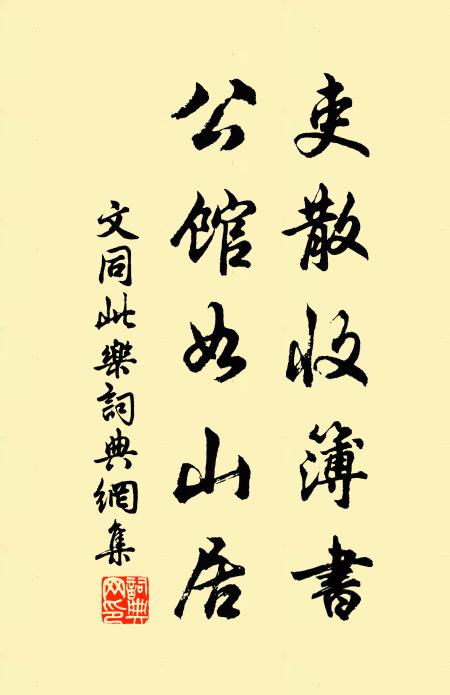 吏散收簿書
公館如山居
文同此樂詞典網集
詞典網印